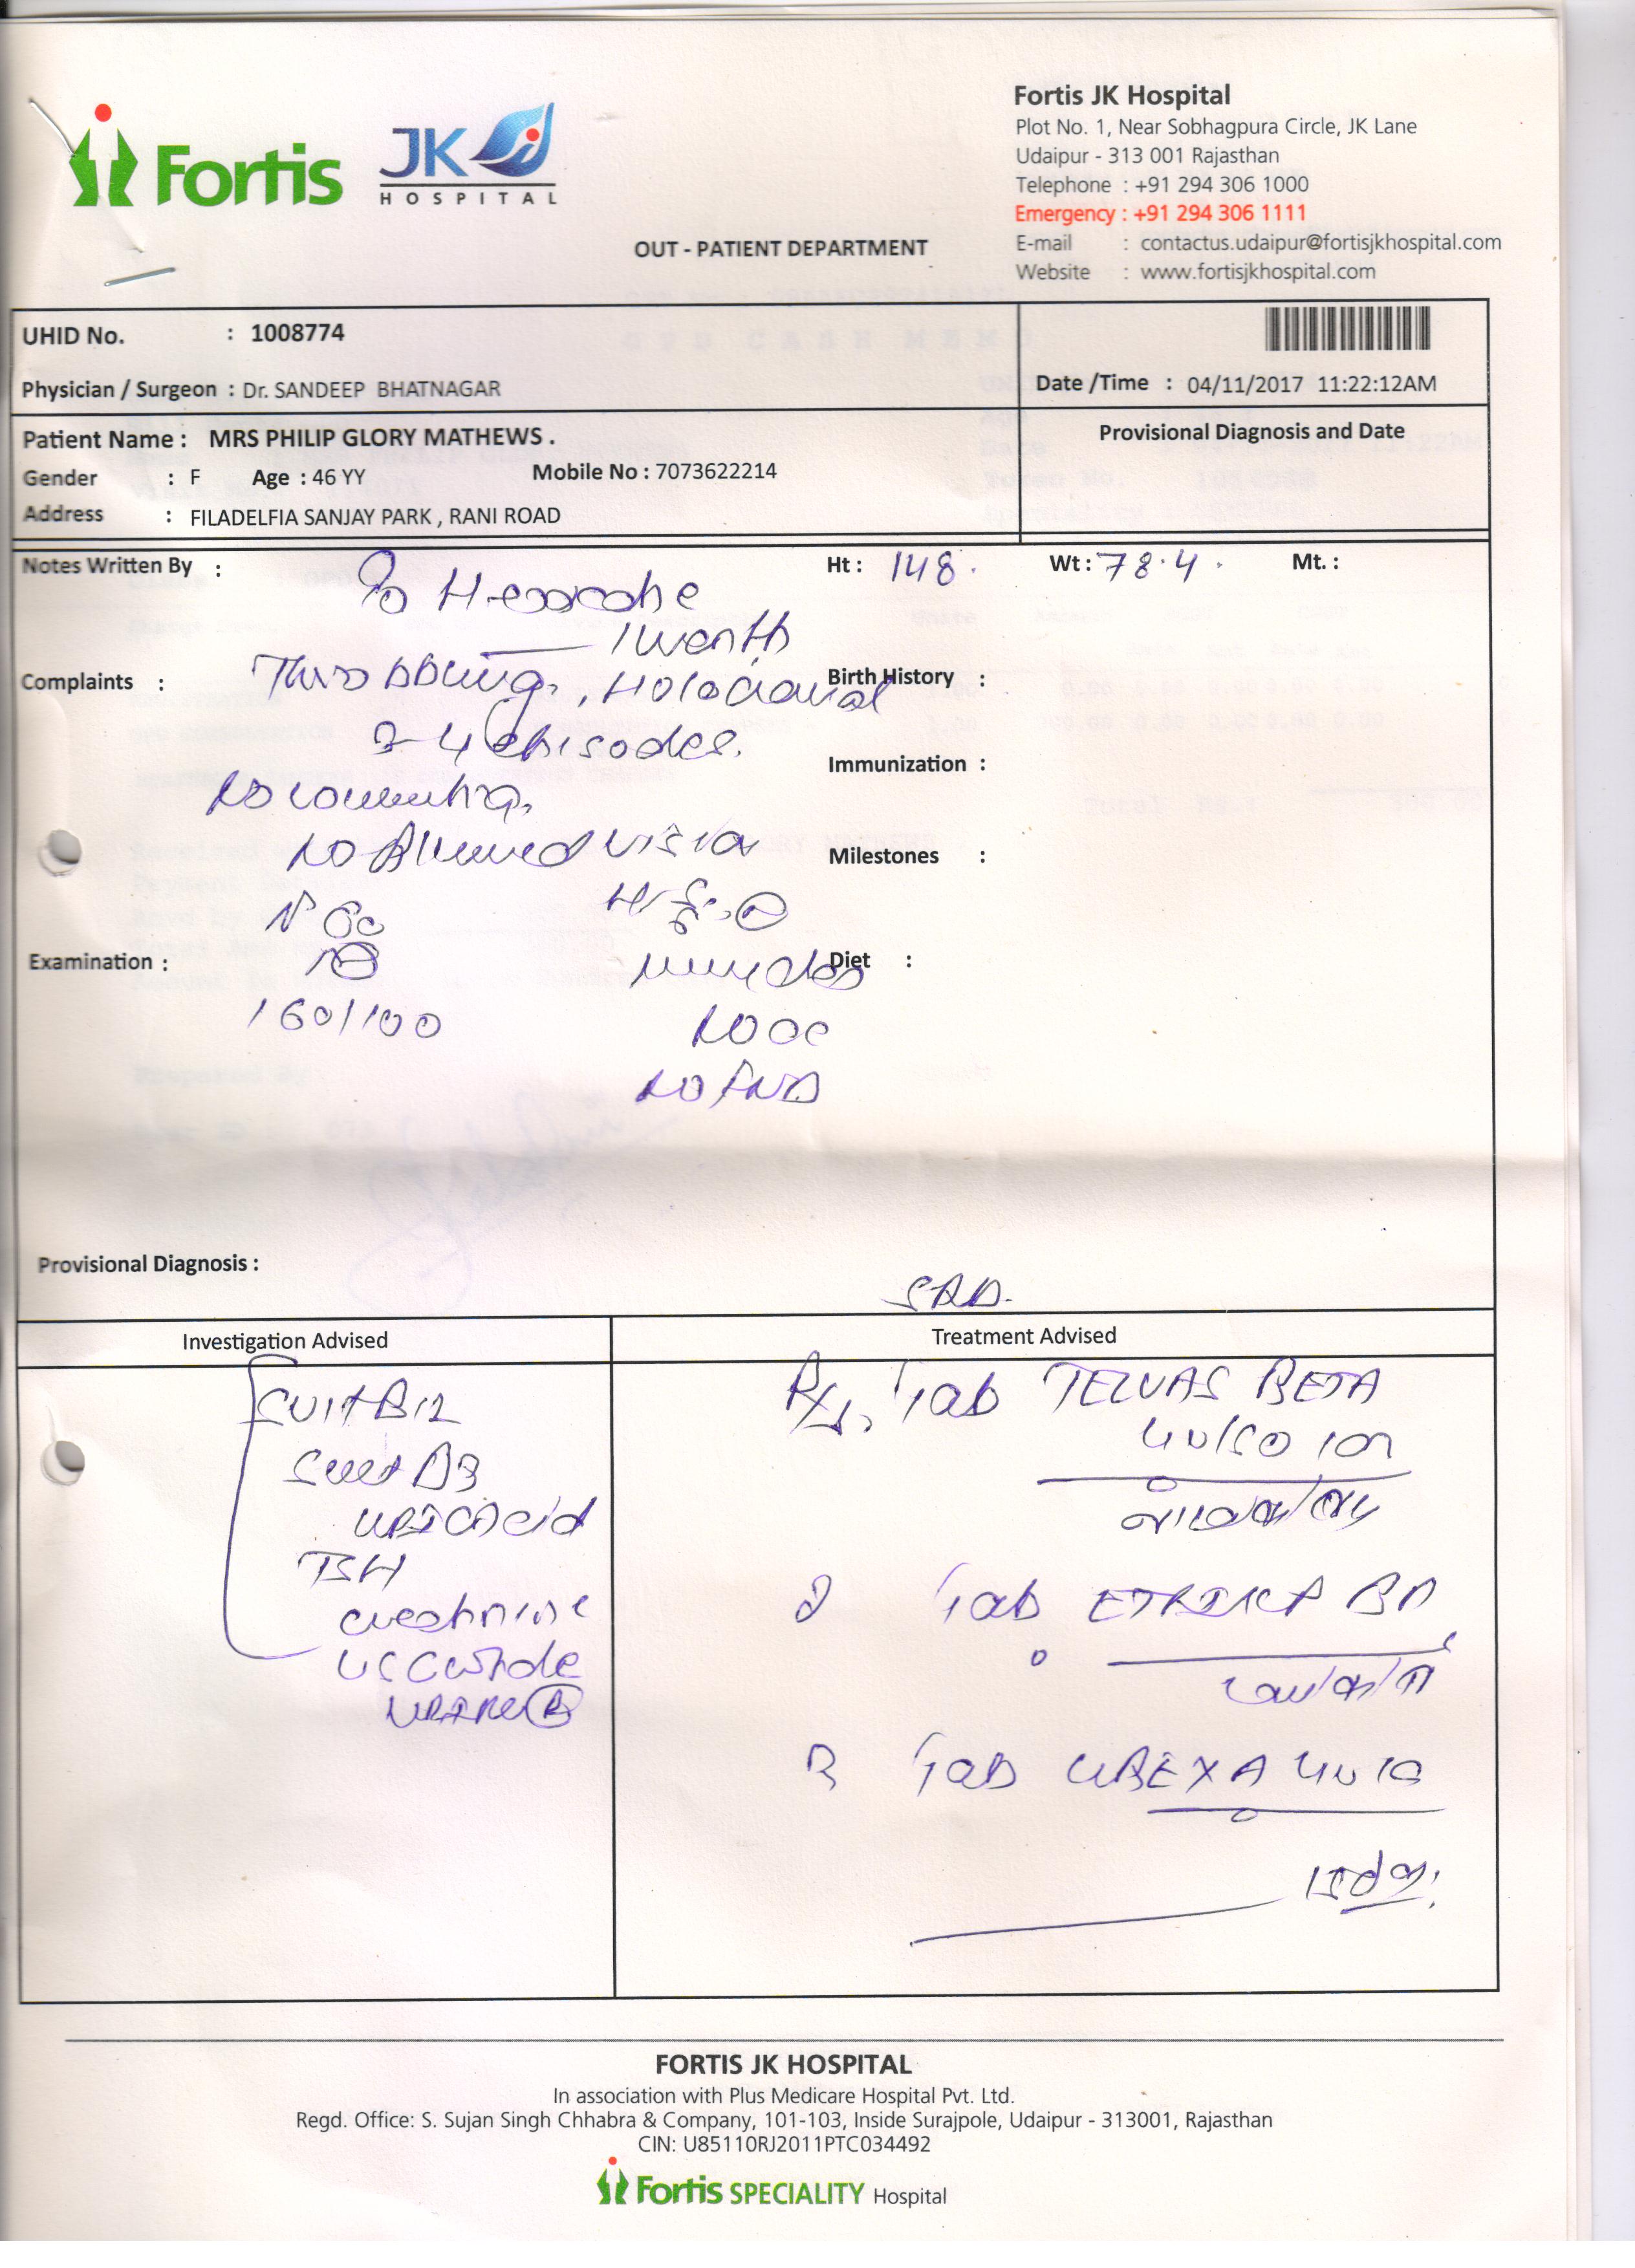 Fortis JK HOSPITAL
Fortis JK Hospital
Plot No. 1, Near Sobhagpura Circle, JK Lane
Udaipur - 313 001 Rajasthan
Telephone : +91 294 306 1000
Emergency : +91 294 306 1111
E-mail : contactus.udaipur@fortisjkhospital.com
Website : www.fortisjkhospital.com
OUT - PATIENT DEPARTMENT
UHID No. : 1008774
Physician / Surgeon : Dr. SANDEEP BHATNAGAR
Date /Time : 04/11/2017 11:22:12AM
Patient Name : MRS PHILIP GLORY MATHEWS .
Provisional Diagnosis and Date
Gender : F Age : 46 YY Mobile No : 7073622214
Address : FILADELFIA SANJAY PARK , RANI ROAD
Notes Written By :
Ht : 148. Wt : 78.4 . Mt. :
Headache
1 month
Complaints : Throbbing, Holocranial
Birth History :
3-4 episodes.
Immunization :
No vomiting,
No Blurred vision
Milestones :
Examination :
Diet :
160/100
No FND
Provisional Diagnosis :
Investigation Advised
Treatment Advised
S Vit B12
S Vit D3
URIC Acid
TSH
creatinine
Rx 1. Tab TELVAS BETA
2 Tab
3 Tab
FORTIS JK HOSPITAL
In association with Plus Medicare Hospital Pvt. Ltd.
Regd. Office: S. Sujan Singh Chhabra & Company, 101-103, Inside Surajpole, Udaipur - 313001, Rajasthan
CIN: U85110RJ2011PTC034492
Fortis SPECIALITY Hospital